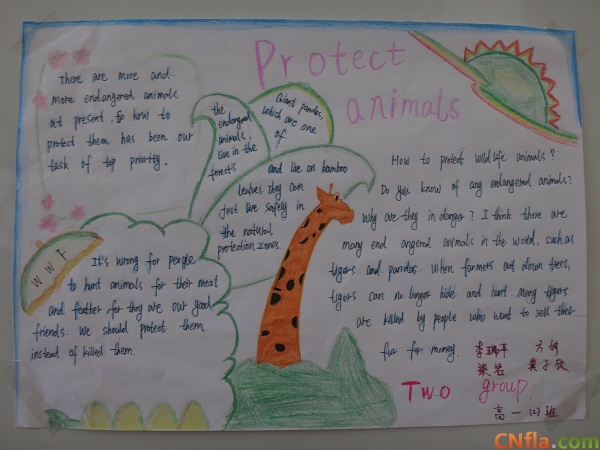 Protect
animals
There are more and
more endangered animals
at present, so how to
protect them has been our
task of top priority.
the
endangered
animals,
live in the
forests
Giant pandas,
which are one
of
and live on bamboo
leaves. They can
just live safely in
the natural
protection zones.
WWF
It's wrong for people
to hunt animals for their meat
and feather for they are our good
friends. We should protect them
instead of killed them.
How to protect wildlife animals?
Do you know of any endangered animals?
Why are they in danger? I think there are
many end angered animals in the world, such as
tigers and pandas. When farmers cut down trees,
tigers can no longer hide and hunt. Many tigers
are killed by people who want to sell their
fur for money.
李瑞平 方婷
梁芸 奠子欣
Two group.
高一(2)班
CNfla.com